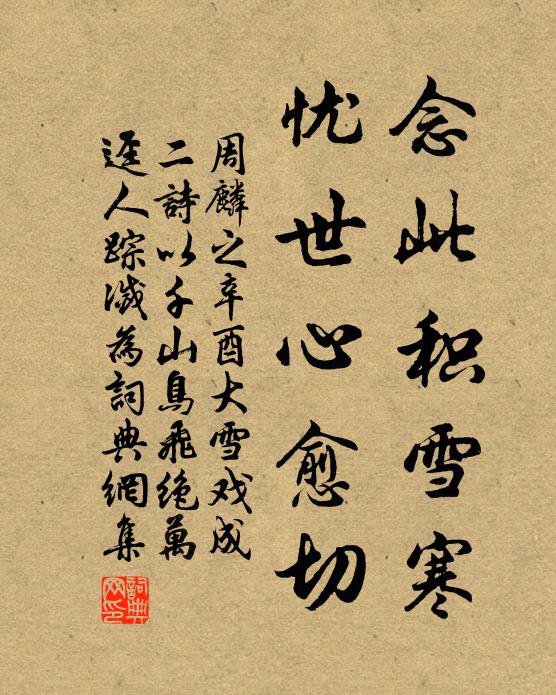 念此积雪寒
忧世心愈切
周麟之辛酉大雪戏成
二詩以千山鳥飛绝萬
迳人踪滅為詞典網集
詞典
网印